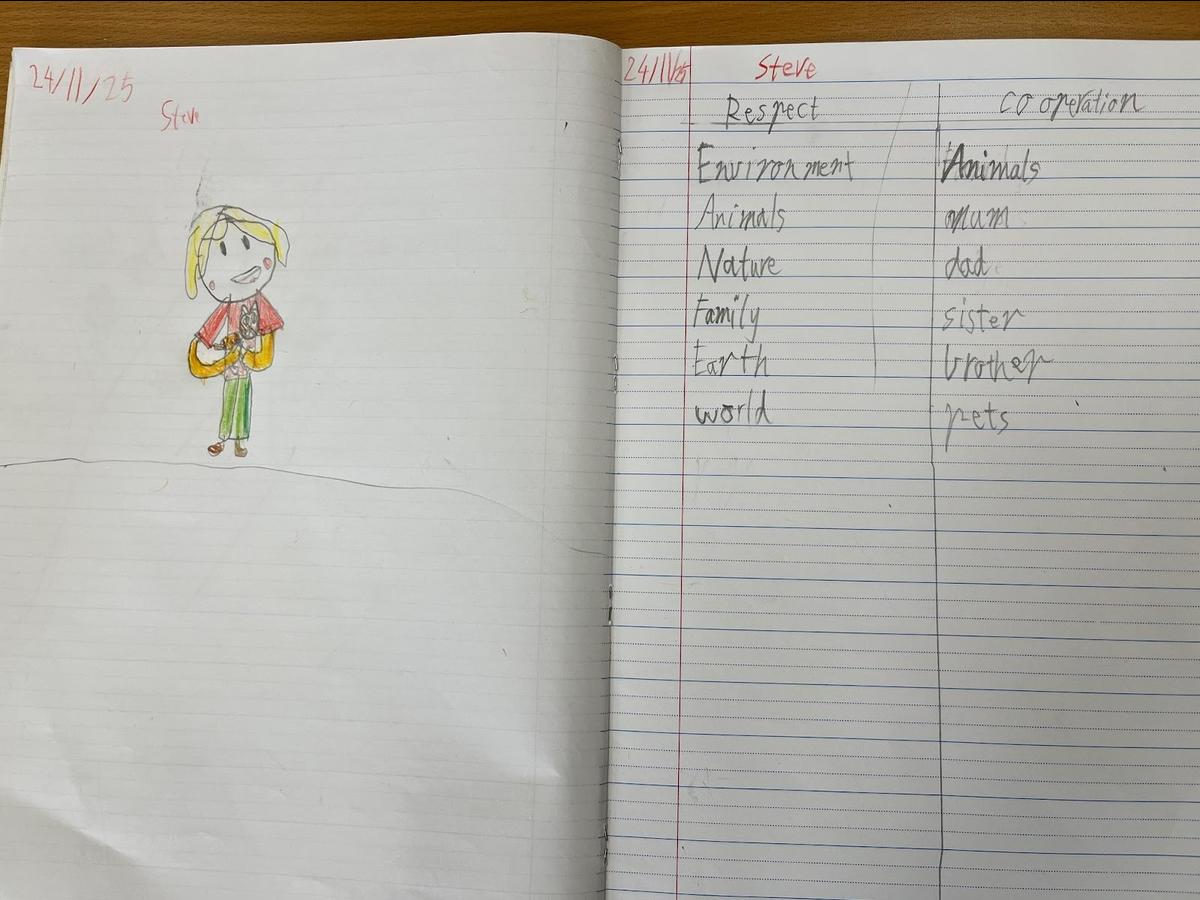 24/11/25
Steve
24/11/25 Steve
Respect cooperation
Environment Animals
Animals mum
Nature dad
Family sister
Earth brother
world pets